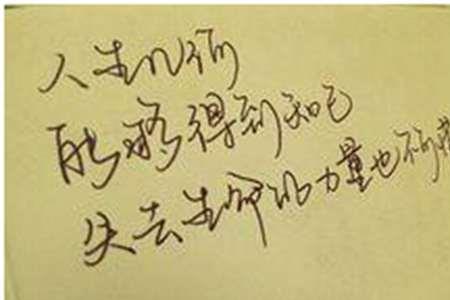 人生几何
能够得到知己
失去生命的力量也不可